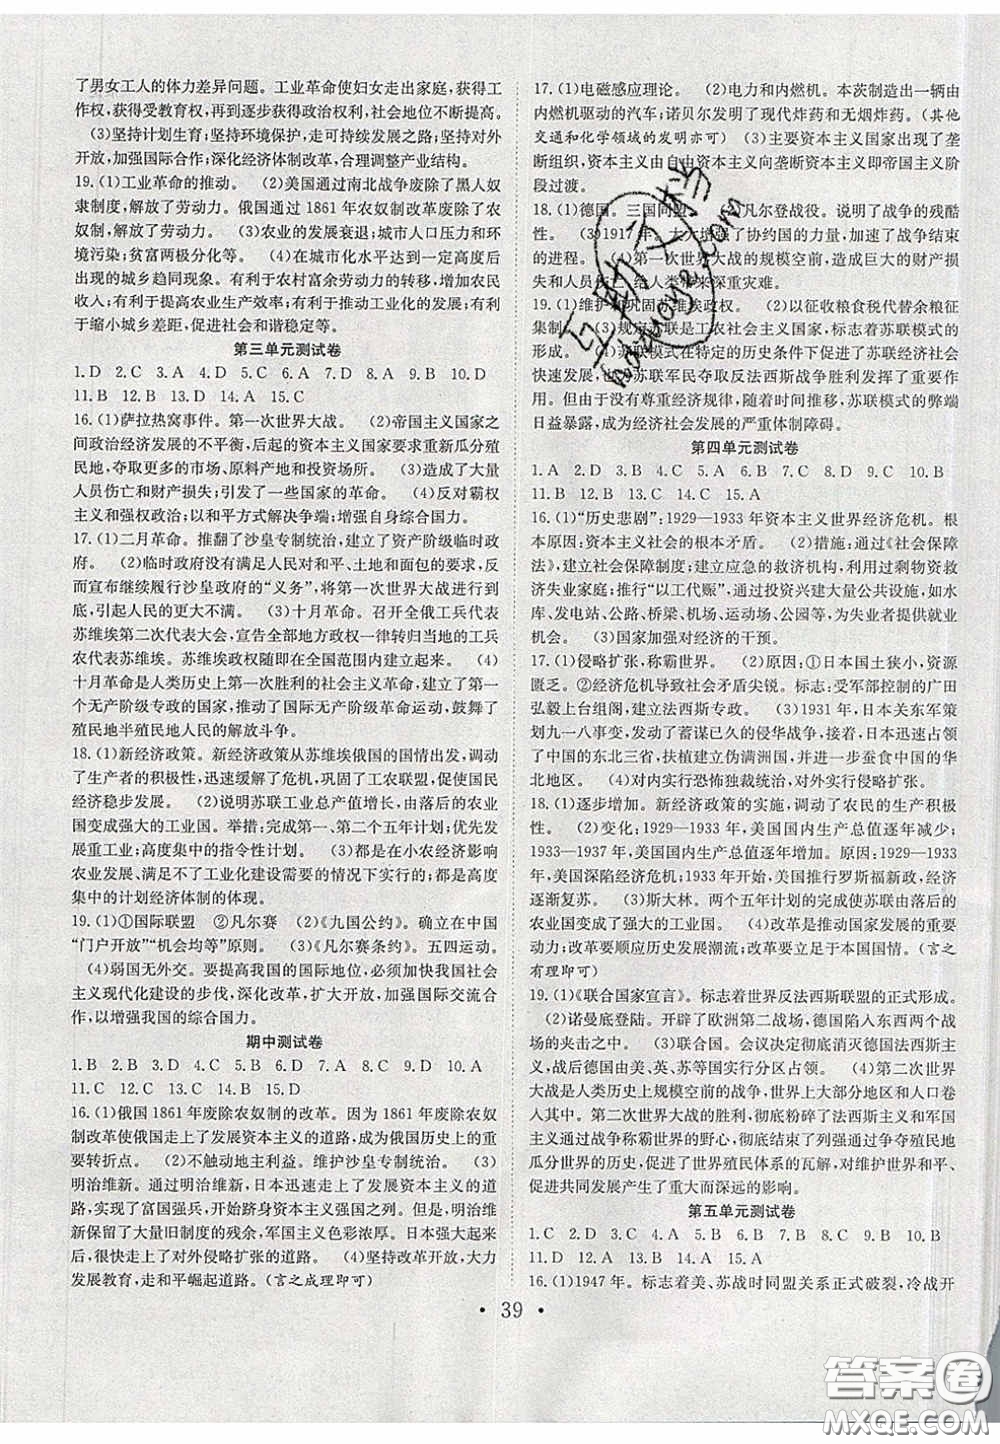 了男女工人的体力差异问题。工业革命使妇女走出家庭,获得工
作权,获得受教育权,再到逐步获得政治权利,社会地位不断提高。
(3)坚持计划生育;坚持环境保护,走可持续发展之路;坚持对外
开放,加强国际合作;深化经济体制改革,合理调整产业结构。
19.(1)工业革命的推动。 (2)美国通过南北战争废除了黑人奴
隶制度,解放了劳动力。俄国通过1861年农奴制改革废除了农
奴制,解放了劳动力。 (3)农业的发展衰退;城市人口压力和环
境污染;贫富两极分化等。 (4)在城市化水平达到一定高度后
出现的城乡趋同现象。有利于农村富余劳动力转移,增加农民
收入;有利于提高农业生产效率;有利于推动工业化的发展;有利
于缩小城乡差距,促进社会和谐稳定等。
第三单元测试卷
1.D 2.C 3.A 4.B 5.C 6.D 7.A 8.C 9.B 10.D
11.B 12.B 13.D 14.C 15.C
16.(1)萨拉热窝事件。第一次世界大战。 (2)帝国主义国家之
间政治经济发展的不平衡,后起的资本主义国家要求重新瓜分殖
民地,夺取更多的市场、原料产地和投资场所。 (3)造成了大量
人员伤亡和财产损失;引发了一些国家的革命。 (4)反对霸权
主义和强权政治;以和平方式解决争端;增强自身综合国力。
17.(1)二月革命。推翻了沙皇专制统治,建立了资产阶级临时政
府。 (2)临时政府没有满足人民对和平、土地和面包的要求,反
而宣布继续履行沙皇政府的“义务”,将第一次世界大战进行到
底,引起人民的更大不满。 (3)十月革命。召开全俄工兵代表
苏维埃第二次代表大会,宣告全部地方政权一律转归当地的工兵
农代表苏维埃。苏维埃政权随即在全国范围内建立起来。 (4)
十月革命是人类历史上第一次胜利的社会主义革命,建立了第一
个无产阶级专政的国家,推动了国际无产阶级革命运动,鼓舞了
殖民地半殖民地人民的解放斗争。
18.(1)新经济政策。新经济政策从苏维埃俄国的国情出发,调动
了生产者的积极性,迅速缓解了危机,巩固了工农联盟,促使国民
经济稳步发展。 (2)说明苏联工业总产值居前,由落后的农业
国变成强大的工业国。举措:完成第一、第二个五年计划;优先发
展重工业;高度集中的指令性计划。 (3)抓住在小农经济影响
农业发展、满足不了工业化建设需要的情况下实行的;是高度
集中的计划经济体制的体现。
19.(1)①国际联盟 ②凡尔赛 (2)《九国公约》。确立在中国
“门户开放”“机会均等”原则。 (3)《凡尔赛条约》。五四运动。
(4)弱国无外交。要提高我国的国际地位,必须加快我国社会
主义现代化建设的步伐,深化改革,扩大开放,加强国际交流合
作,以增强我国的综合国力。
期中测试卷
1.B 2.B 3.D 4.C 5.B 6.D 7.A 8.C 9.D 10.A
11.C 12.C 13.D 14.C 15.D
16.(1)俄国1861年废除农奴制的改革。因为1861年废除农奴
制改革使俄国走上了发展资本主义的道路,成为俄国历史上的重
要转折点。 (2)不触动地主利益。维护沙皇专制统治。 (3)
明治维新。通过明治维新,日本迅速走上了发展资本主义的道
路,实现了富国强兵,开始跻身资本主义强国之列。但明治维新
后日本保留了大量旧制度的残余,军国主义色彩浓厚。日本强大
起来后,走上了对外侵略扩张的道路。 (4)坚持改革开放,大力
发展教育,走和平崛起道路。(言之成理即可)
17.(1)电磁感应理论。 (2)电力和内燃机。本茨制造出一辆由
内燃机驱动的汽车;诺贝尔发明了现代炸药和无烟炸药。(其他
交通和化学领域的发明亦可) (3)主要资本主义国家出现了垄
断组织,资本主义由自由资本主义向垄断资本主义即帝国主义阶
段过渡。
18.(1)德国。三国同盟。 (2)凡尔登战役。说明了战争的残酷
性。 (3)1917年。大大增强了协约国的力量,加速了战争结束
的进程。 (4)第一次世界大战的规模空前,造成巨大的财产
损失和人员伤亡,给人类带来深重灾难。
19.(1)维护和巩固苏维埃政权。 (2)以征收粮食税代替余粮征
集制。 (3)规定苏联是工农社会主义国家,标志着苏联模式的
形成。 (4)苏联模式在特定的历史条件下促进了苏联经济社会
快速发展,也为苏联军民夺取反法西斯战争胜利发挥了重要作
用。但由于没有尊重经济规律,随着时间推移,苏联模式的弊端
日益暴露,成为经济社会发展的严重体制障碍。
第四单元测试卷
1.A 2.D 3.D 4.C 5.A 6.B 7.D 8.D 9.C 10.B
11.B 12.B 13.C 14.C 15.A
16.(1)“历史悲剧”:1929—1933年资本主义世界经济危机。根
本原因:资本主义社会的根本矛盾。 (2)措施:通过《社会保障
法》,建立社会保障制度;建立应急的救济机构,利用过剩物资救
济失业家庭;推行“以工代赈”,通过投资兴建大量公共设施,如水
库、发电站、公路、桥梁、机场、运动场、公园等,为失业者提供就业
机会。 (3)国家加强对经济的干预。
17.(1)侵略扩张,称霸世界。 (2)原因:①日本国土狭小,资源
匮乏。②经济危机导致社会矛盾尖锐。标志:受军部控制的广田
弘毅上台组阁,建立法西斯专政。 (3)1931年,日本关东军策划
九一八事变,发动了蓄谋已久的侵华战争,接着,日本迅速占领了
中国的东北三省,扶植建立伪满洲国,并进一步蚕食中国的华
北地区。 (4)对内实行恐怖独裁统治,对外实行侵略扩张。
18.(1)逐步增加。新经济政策的实施,调动了农民的生产积极
性。 (2)变化:1929—1933年,美国国内生产总值逐年减少;
1933—1937年,美国国内生产总值逐年增加。原因:1929—1933
年,美国深陷经济危机;1933年开始,美国推行罗斯福新政,经济
逐渐复苏。 (3)斯大林。两个五年计划的完成使苏联由落后的
农业国变成了强大的工业国。 (4)改革是推动国家发展的重要
动力;改革要顺应历史发展潮流;改革要立足于本国国情。(言之
有理即可)
19.(1)《联合国家宣言》。标志着世界反法西斯联盟的正式形成。
(2)诺曼底登陆。开辟了欧洲第二战场,使德国陷入东西两线
的夹击之中。 (3)联合国。会议决定彻底消灭德国法西斯主
义,战后德国由美、英、苏等国实行分区占领。 (4)第二次世界
大战是人类历史上规模空前的战争,世界上大部分地区和人口卷
入其中。第二次世界大战的胜利,彻底粉碎了法西斯主义和军国
主义通过战争称霸世界的野心,彻底结束了列强通过争夺殖民地
瓜分世界的历史,促进了世界殖民体系的瓦解,对维护世界和平、
促进共同发展产生了重大而深远的影响。
第五单元测试卷
1.C 2.C 3.B 4.D 5.C 6.B 7.B 8.A 9.C 10.B
11.D 12.A 13.D 14.A 15.A
16.(1)1947年。标志着美、苏战时同盟关系正式破裂,冷战开
• 39 •
答案卷
MXQE.COM